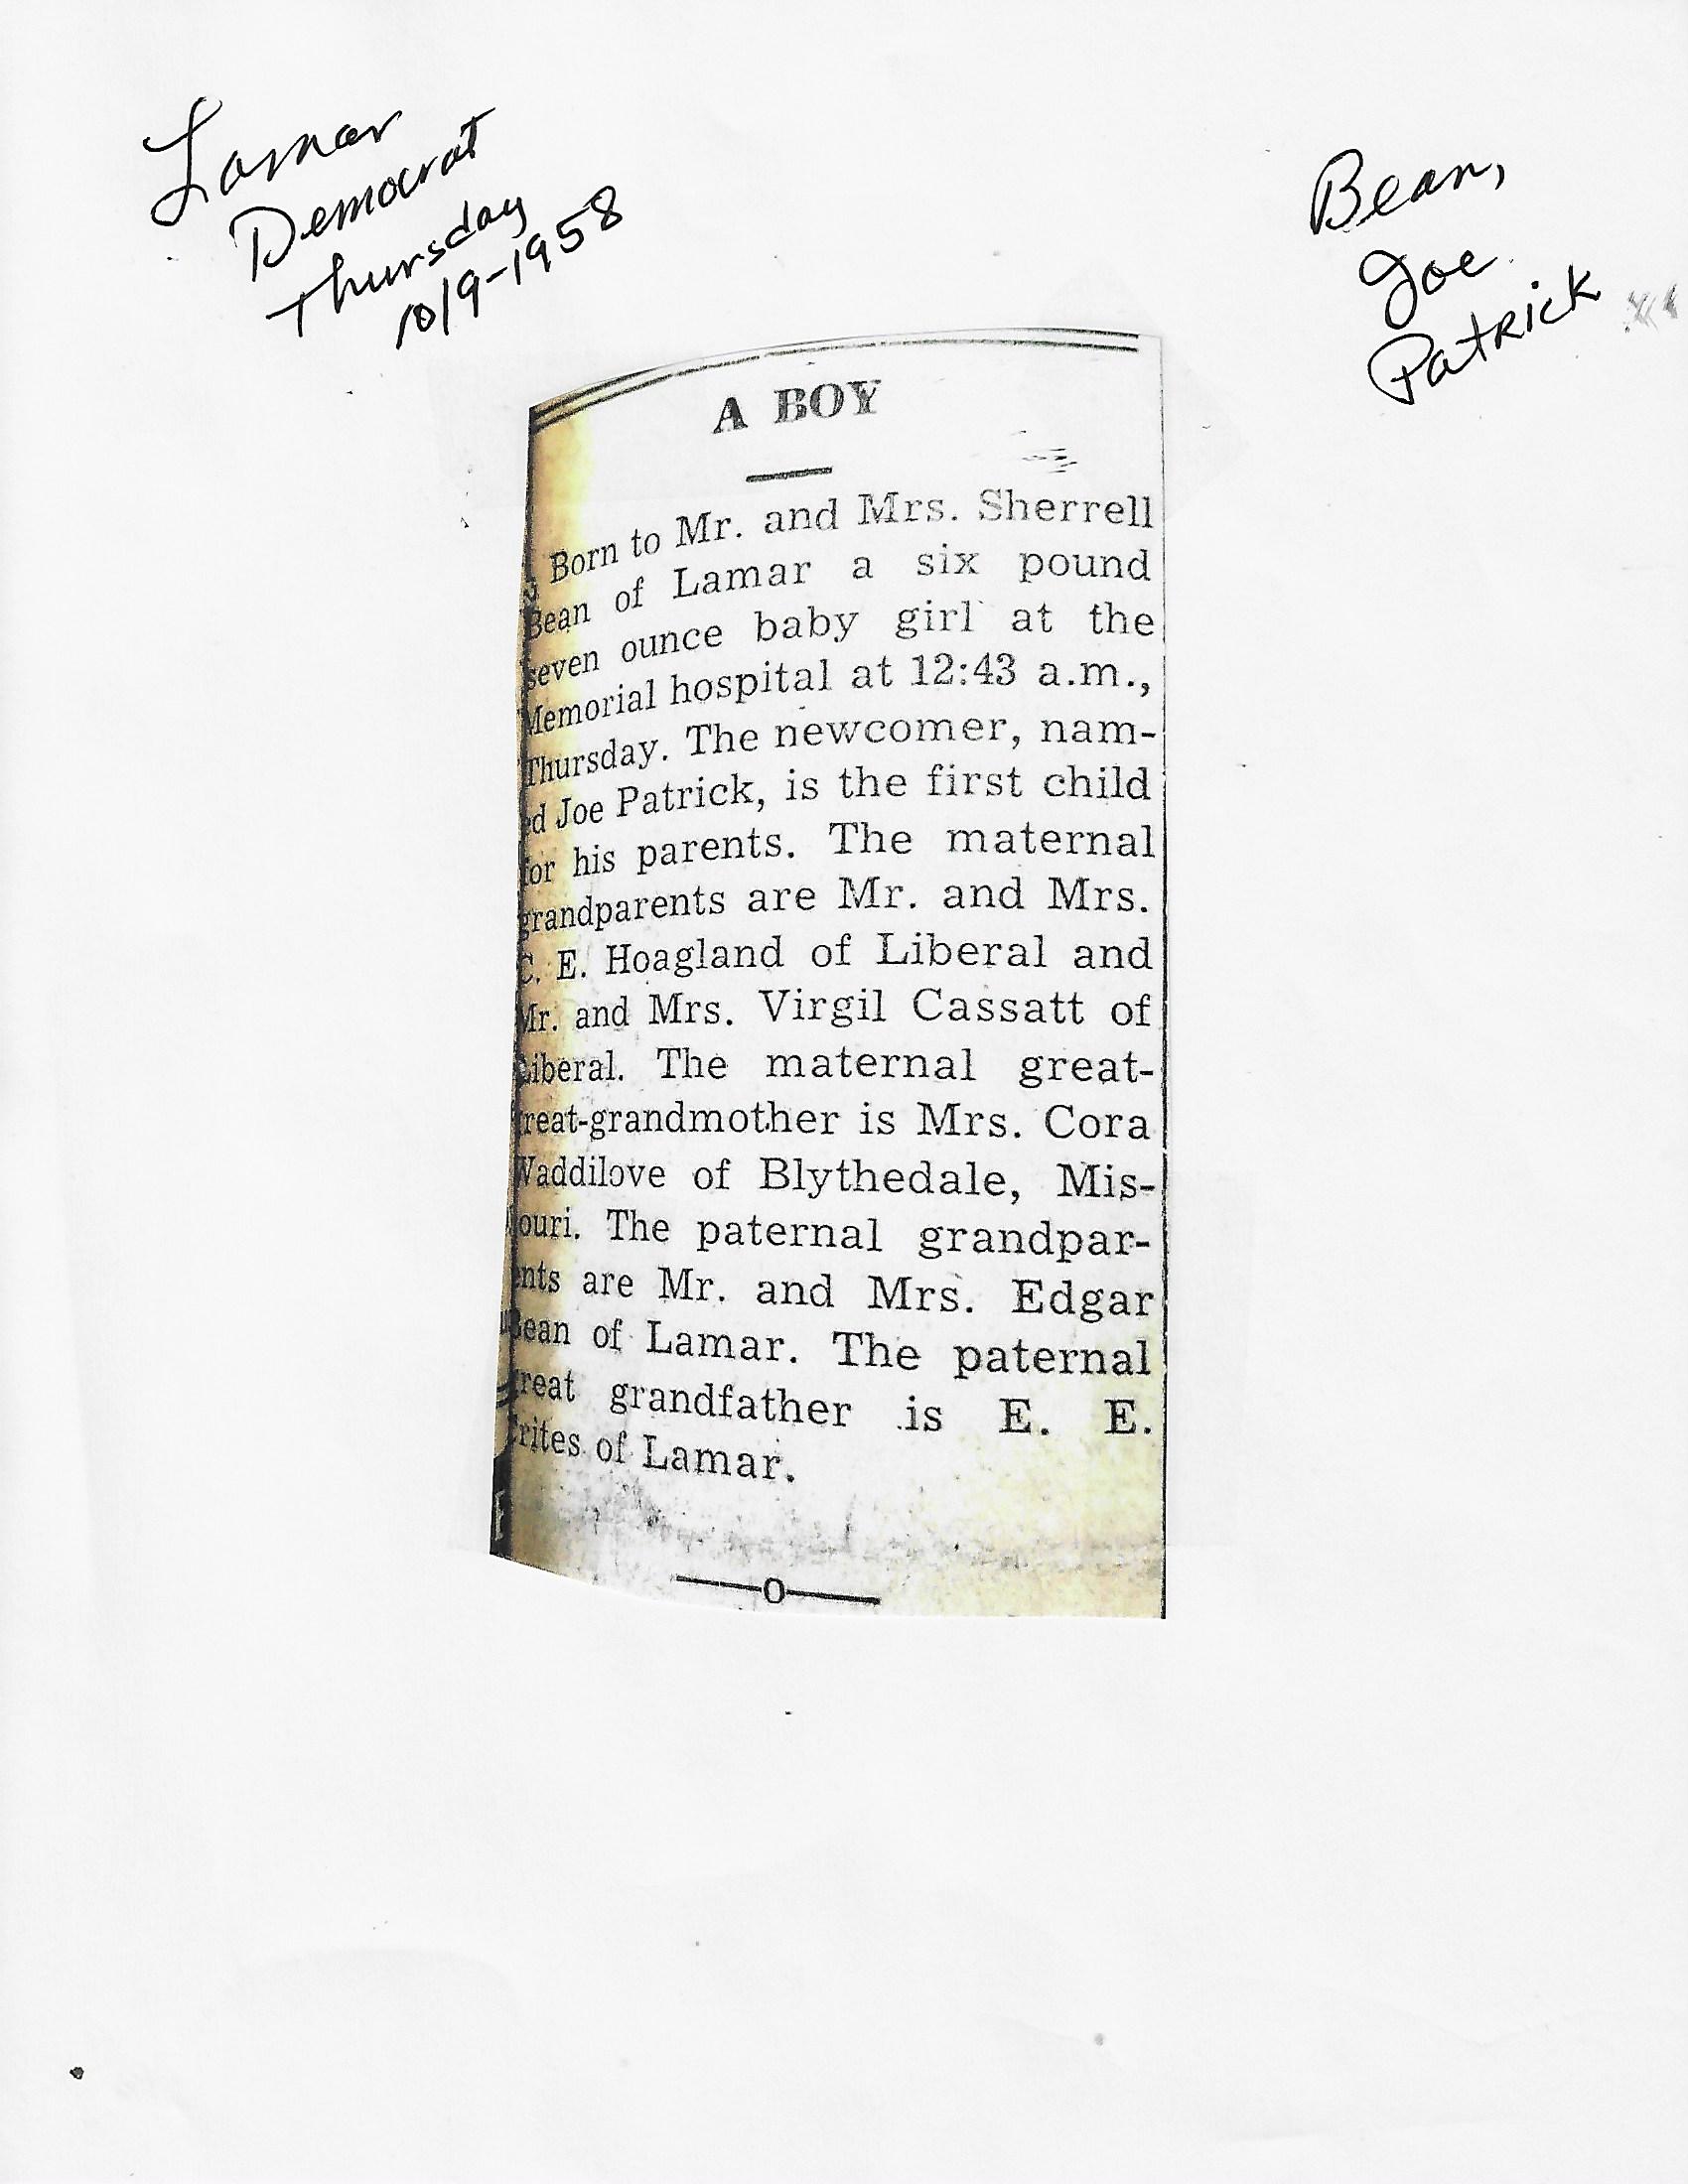 Lamar
Democrat
Thursday
10/9-1958
Bean,
Joe
Patrick
A BOY
Born to Mr. and Mrs. Sherrell
Bean of Lamar a six pound
seven ounce baby girl at the
Memorial hospital at 12:43 a.m.,
Thursday. The newcomer, nam-
ed Joe Patrick, is the first child
for his parents. The maternal
grandparents are Mr. and Mrs.
C. E. Hoagland of Liberal and
Mr. and Mrs. Virgil Cassatt of
Liberal. The maternal great-
great-grandmother is Mrs. Cora
Waddilove of Blythedale, Mis-
souri. The paternal grandpar-
ents are Mr. and Mrs. Edgar
Bean of Lamar. The paternal
great grandfather is E. E.
Crites of Lamar.